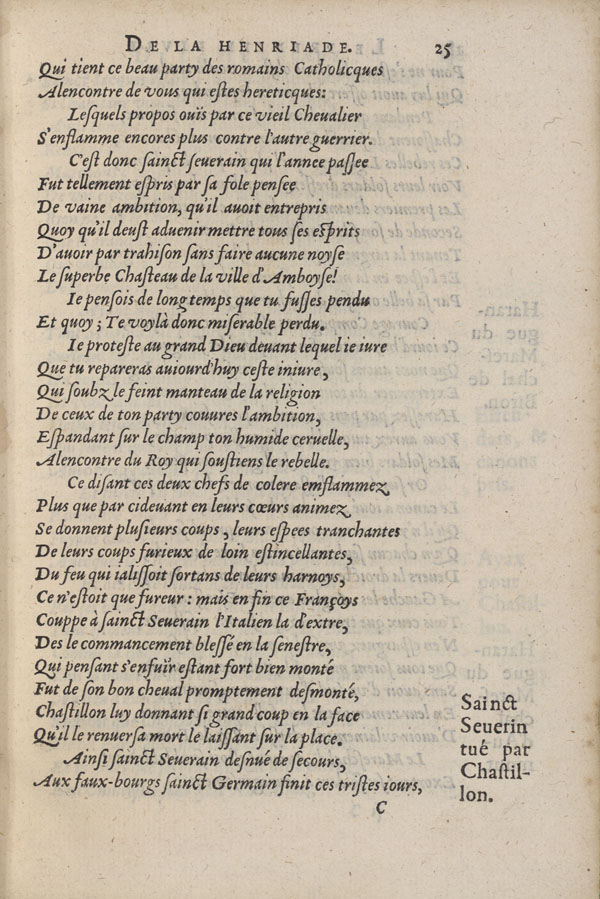 DE LA HENRIADE. 25
Qui tient ce beau party des romains Catholicques
Alencontre de vous qui eſtes hereticques:
Leſquels propos ouïs par ce vieil Cheualier
S'enflamme encores plus contre l'autre guerrier.
C'eſt donc ſainct ſeuerain qui l'annee paſſee
Fut tellement eſpris par ſa fole penſee
De vaine ambition, qu'il auoit entrepris
Quoy qu'il deuſt aduenir mettre tous ſes eſprits
D'auoir par trahiſon ſans faire aucune noyſe
Le ſuperbe Chaſteau de la ville d'Amboyſe!
Ie penſois de long temps que tu fuſſes pendu
Et quoy; Te voylà donc miſerable perdu.
Ie proteſte au grand Dieu deuant lequel ie iure
Que tu repareras auiourd'huy ceſte iniure,
Qui ſoubz le feint manteau de la religion
De ceux de ton party couures l'ambition,
Eſpandant ſur le champ ton humide ceruelle,
Alencontre du Roy qui ſouſtiens le rebelle.
Ce diſant ces deux chefs de colere emflammez
Plus que par cideuant en leurs cœurs animez
Se donnent pluſieurs coups, leurs eſpees tranchantes
De leurs coups furieux de loin eſtincellantes,
Du feu qui ialiſſoit ſortans de leurs harnoys,
Ce n'eſtoit que fureur: mais en fin ce Françoys
Couppe à ſainct Seuerain l'Italien la d'extre,
Des le commancement bleſſé en la ſeneſtre,
Qui penſant s'enfuïr eſtant fort bien monté
Fut de ſon bon cheual promptement deſmonté,
Chaſtillon luy donnant ſi grand coup en la face
Qu'il le renuerſa mort le laiſſant ſur la place.
Ainſi ſainct Seuerain deſnué de ſecours,
Aux faux-bourgs ſainct Germain finit ces triſtes iours,
C
Sainct
Seuerin
tué par
Chaſtil-
lon.